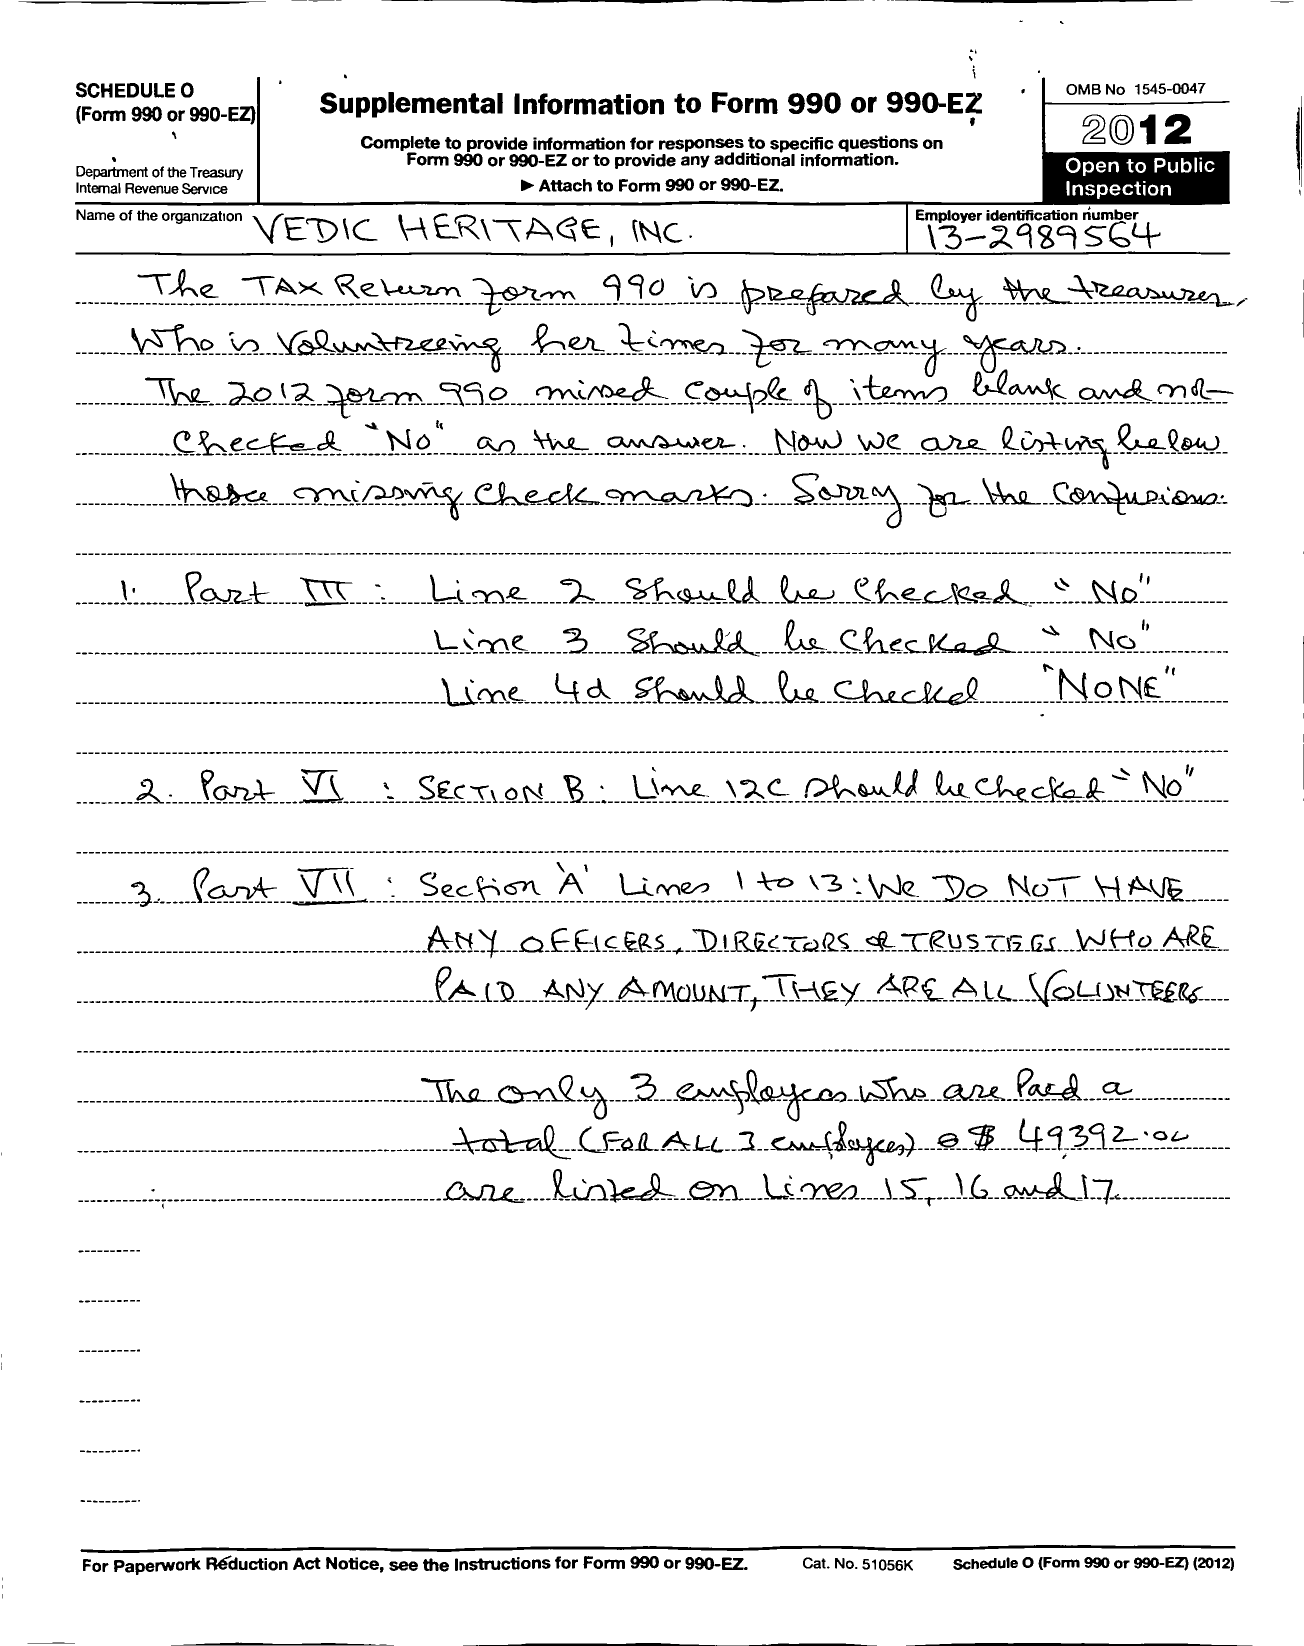 SCHEDULE O
(Form 990 or 990-EZ)
Department of the Treasury
Internal Revenue Service
Supplemental Information to Form 990 or 990-EZ
Complete to provide information for responses to specific questions on
Form 990 or 990-EZ or to provide any additional information.
▶ Attach to Form 990 or 990-EZ.
OMB No 1545-0047
2012
Open to Public
Inspection
Name of the organization VEDIC HERITAGE, INC.
Employer identification number
13-2989564
The TAX Return form 990 is prepared by the treasurer,
Who is Voluntreeing her times for many years.
The 2012 form 990 missed couple of items blank and not
Checked "No" as the answer. Now we are listing below
those missing check marks. Sorry for the Confusions.
1. Part III : Line 2 Should be Checked "No"
Line 3 Should be Checked "No"
Line 4d Should be Checked "NONE"
2. Part VI : SECTION B : Line 12C Should be Checked "No"
3. Part VII : Section 'A' Lines 1 to 13 : We DO NOT HAVE
ANY OFFICERS, DIRECTORS or TRUSTEES WHO ARE
PAID ANY AMOUNT, THEY ARE ALL VOLUNTEERS
The only 3 employees who are Paid a
total (FOR ALL 3 employees) $ 49392.00
are listed on Lines 15, 16 and 17.
For Paperwork Reduction Act Notice, see the Instructions for Form 990 or 990-EZ.
Cat. No. 51056K
Schedule O (Form 990 or 990-EZ) (2012)